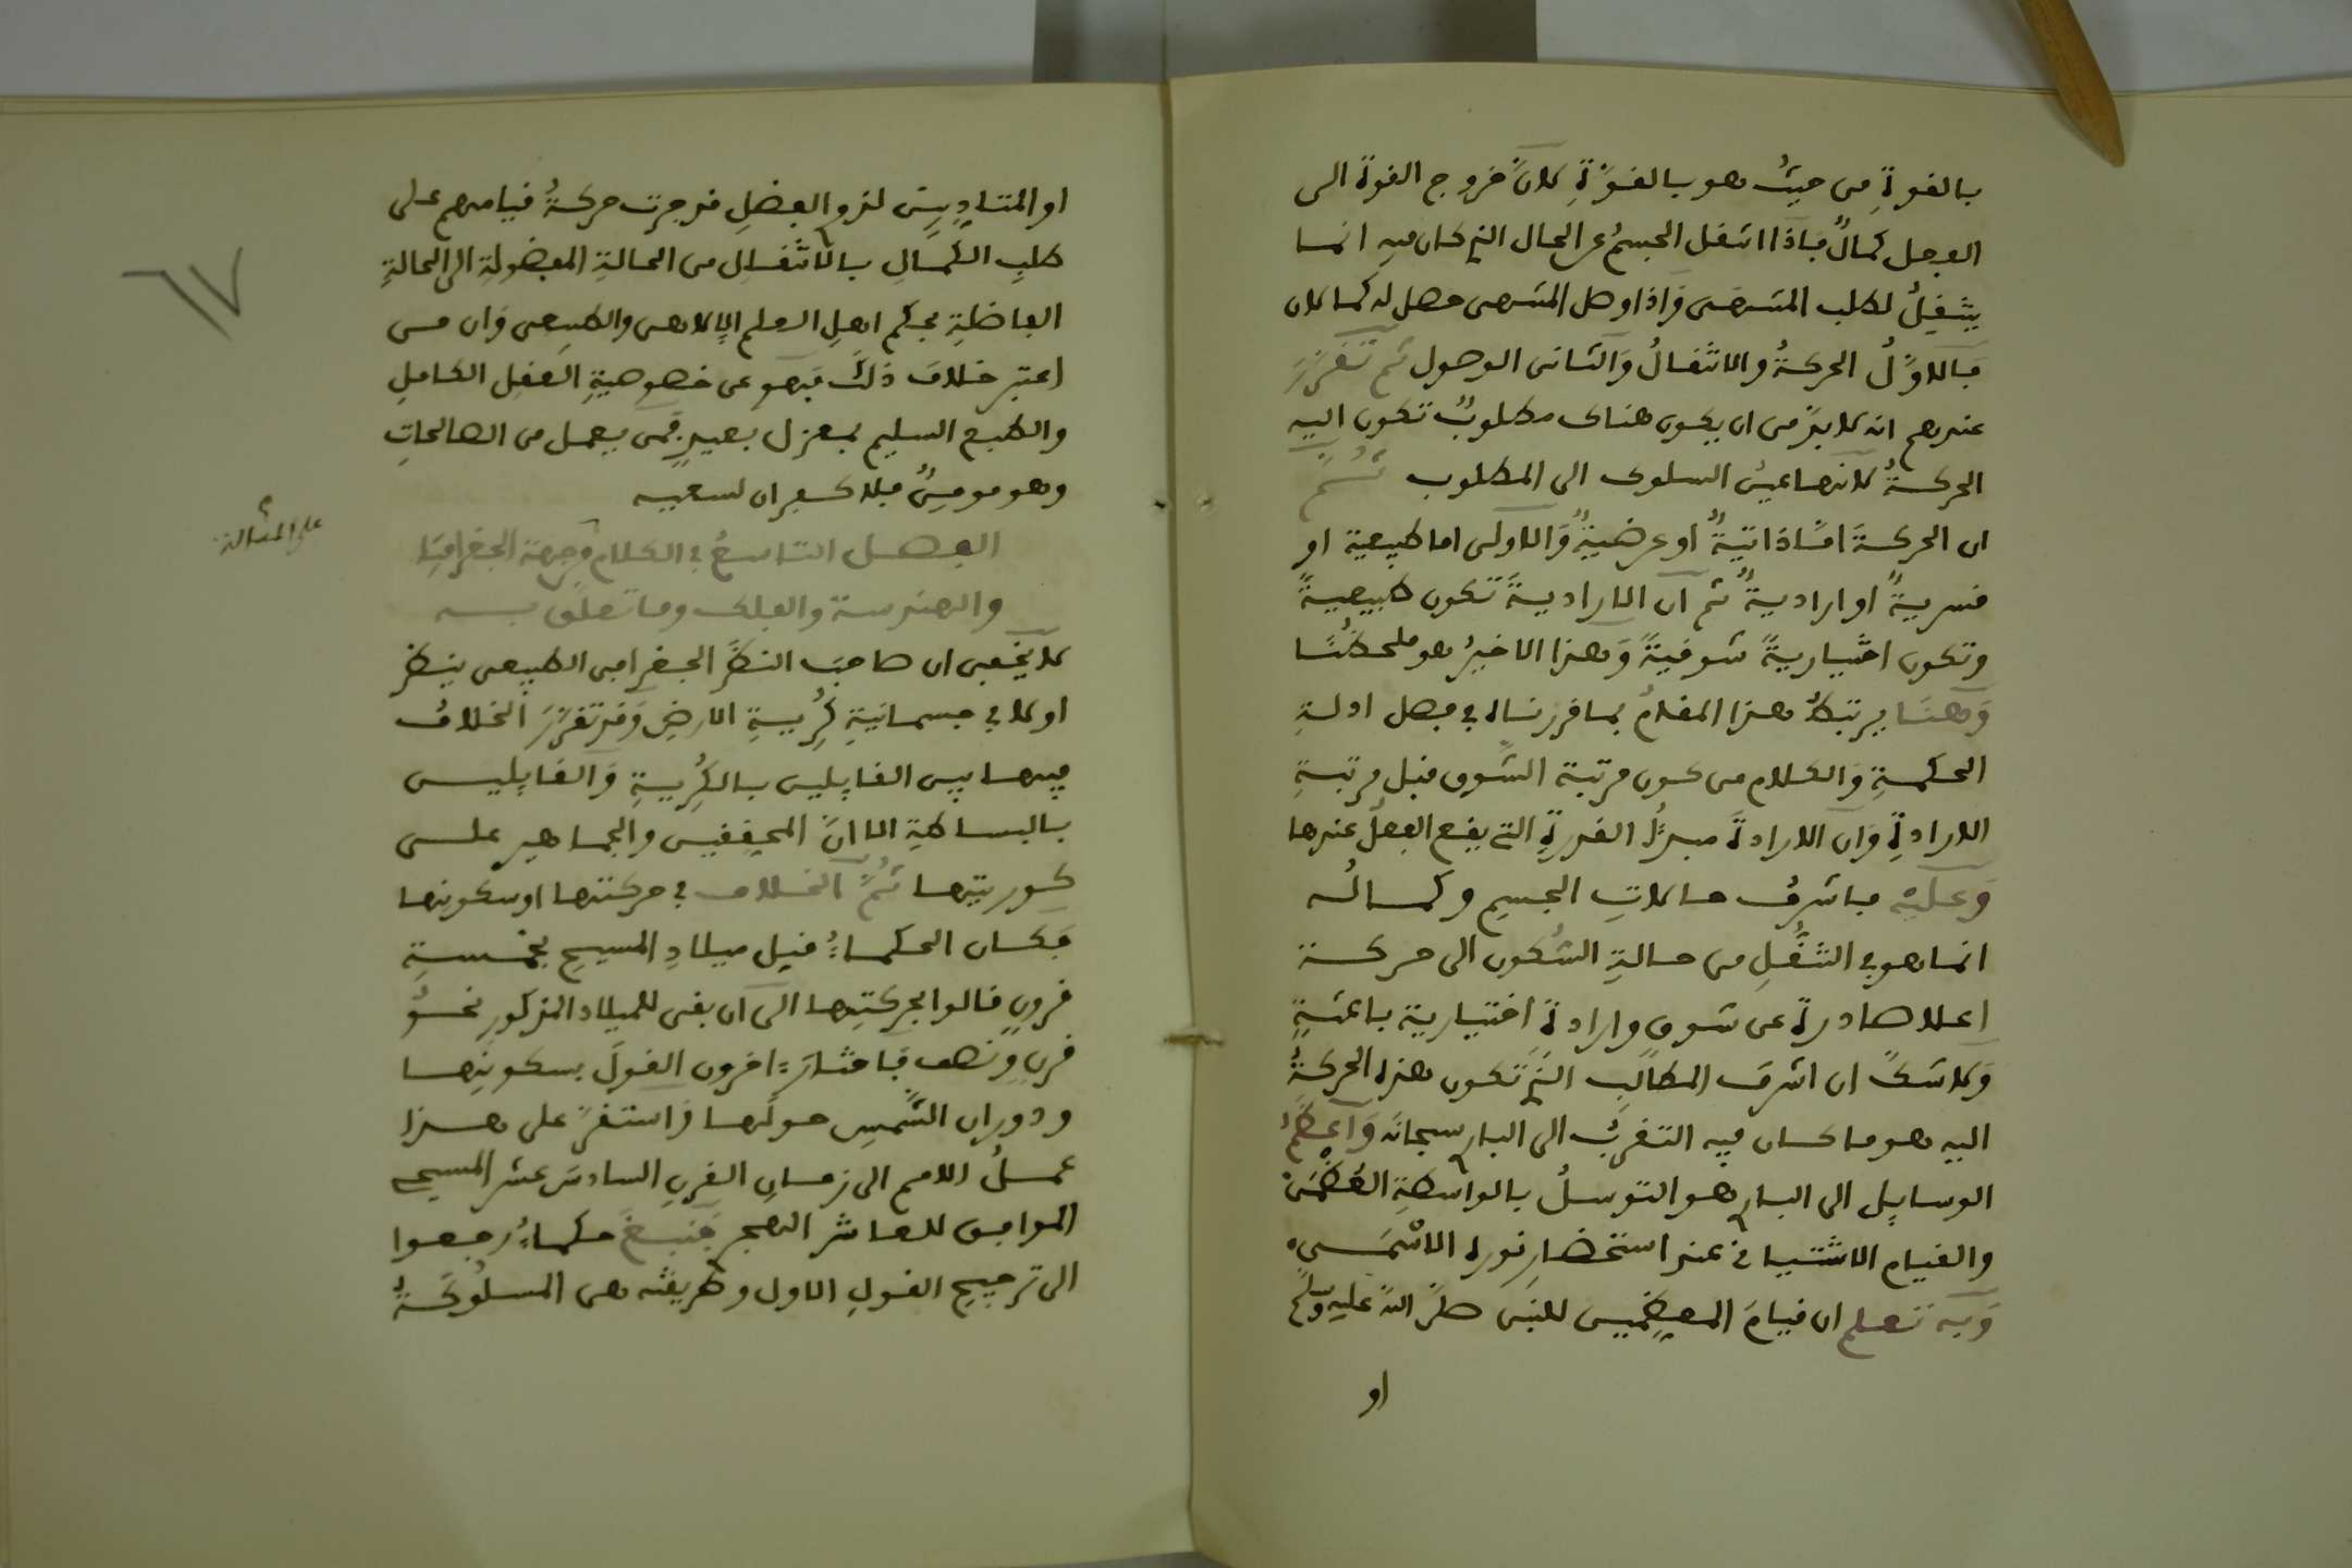 بالقوةِ من حيثُ هو بالقوّةِ لانّ خروج القوة الى
الفعل كمالٌ فاذا انتقل الجسمُ عن الحال التي كان فيه انما
ينتقلُ لطلب المنتهى واذا وصل المنتهى حصل له كمالان
فالاوّلُ الحركةُ والانتقالُ والثاني الوصول ثم تقرّر
عندهم انه لا بدّ من ان يكون هناك مطلوبٌ تكون اليه
الحركةُ لانها عينُ السلوك الى المطلوب ثُمّ
ان الحركةَ امّا ذاتيةٌ او عرضيةٌ والاولى اما طبيعية او
قسريةٌ او اراديةٌ ثم ان الاراديةَ تكون طبيعيةً
وتكون اختياريةً شوقيةً وهذا الاخيرُ هو ملحظُنا
وهنا يرتبطُ هذا المقامُ بما قررناه في فصل ادلةِ
الحكمةِ والكلام من كون مرتبة الشّوق قبل مرتبةِ
الارادةِ وان الارادةَ مبدأُ القدرةِ التي يقع الفعلُ عندها
وعليه فاشرفُ حالاتِ الجسمِ وكمالُه
انما هو في التنقُّلِ من حالةِ السُّكون الى حركة
اعلا صادرة عن شوقٍ وارادةٍ اختيارية باعثةٍ
ولا شكّ ان اشرفَ المطالب التي تكون هذه الحركةُ
اليه هو ما كان فيه التقربُ الى الباري سبحانَه واعظمُ
الوسايل الى الباري هو التوسلُ بالواسطةِ العُظمى
والقيام الاشتياقي عند استحضار نوره الاسمى
وبه تعلم ان قيامَ المعظمين للنبي صلى الله عليه وسلم
او
او المتاديين لذوي الفضلِ قد جرت حركةُ قيامهم على
طلبِ الكمالِ بالانتقالِ من الحالةِ المفضولةِ الى الحالةِ
الفاضلةِ بحكم اهل العلم الإلاهي والطبيعي وان من
اعتبر خلافَ ذلك فهو عن خصوصيةِ العقل الكاملِ
والطبع السليم بمعزل بعيدٍ فمن يعمل من الصالحاتِ
وهو مومنٌ فلا كفران لسعيه
الفصل التاسعُ في الكلام من جهة الجغرافيا
والهندسة والفلك وما تعلّق به
لا يخفى ان صاحبَ النظَر الجغرافي الطبيعي ينظر
اولا في جسمانيةِ كُريةِ الارضِ وقد تقرّرَ الخلافُ
فيها بين القايلين بالكُريةِ والقايلين
بالبساطةِ الا انّ المحققين والجماهير على
كوريتها ثُمّ الخلاف في حركتها او سكونها
فكان الحكماءُ قبل ميلادِ المسيحِ بخمسةِ
قرونٍ قالوا بحركتِها الى ان بقى للميلاد المذكورِ نحوُ
قرنٍ ونصف فاختارَ اخرون القولَ بسكونِها
ودوران الشّمسِ حولَها واستقرّ على هذا
عملُ الامم الى زمانِ القرنِ السادسَ عشر المسيحي
الموافق للعاشر الهجري فنبغَ حكماءُ رجعوا
الى ترجيحِ القولِ الاول وطريقته هي المسلوكةُ